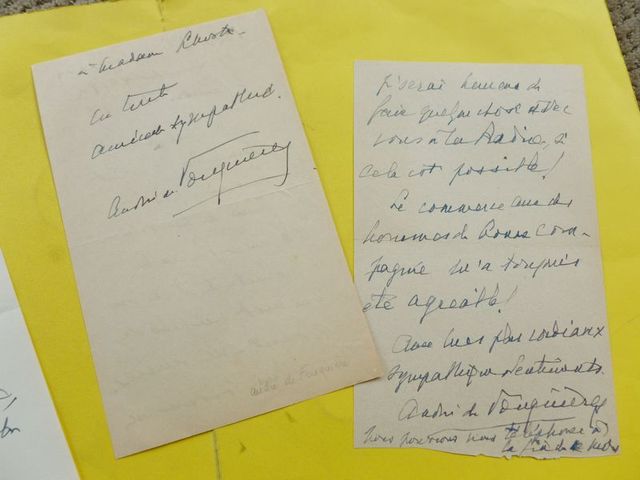 à Madame
en toute
amicale sympathie.
André de Fouquières
andré de Fouquières
Je serai heureux de
faire quelque chose avec
vous à la Radio, si
cela est possible!
Le commerce avec des
hommes de bonne com-
pagnie m'a toujours
été agréable!
avec mes plus cordiaux
sympathiques sentiments.
André de Fouquières
nous pourrions nous téléphoner à
la fin de